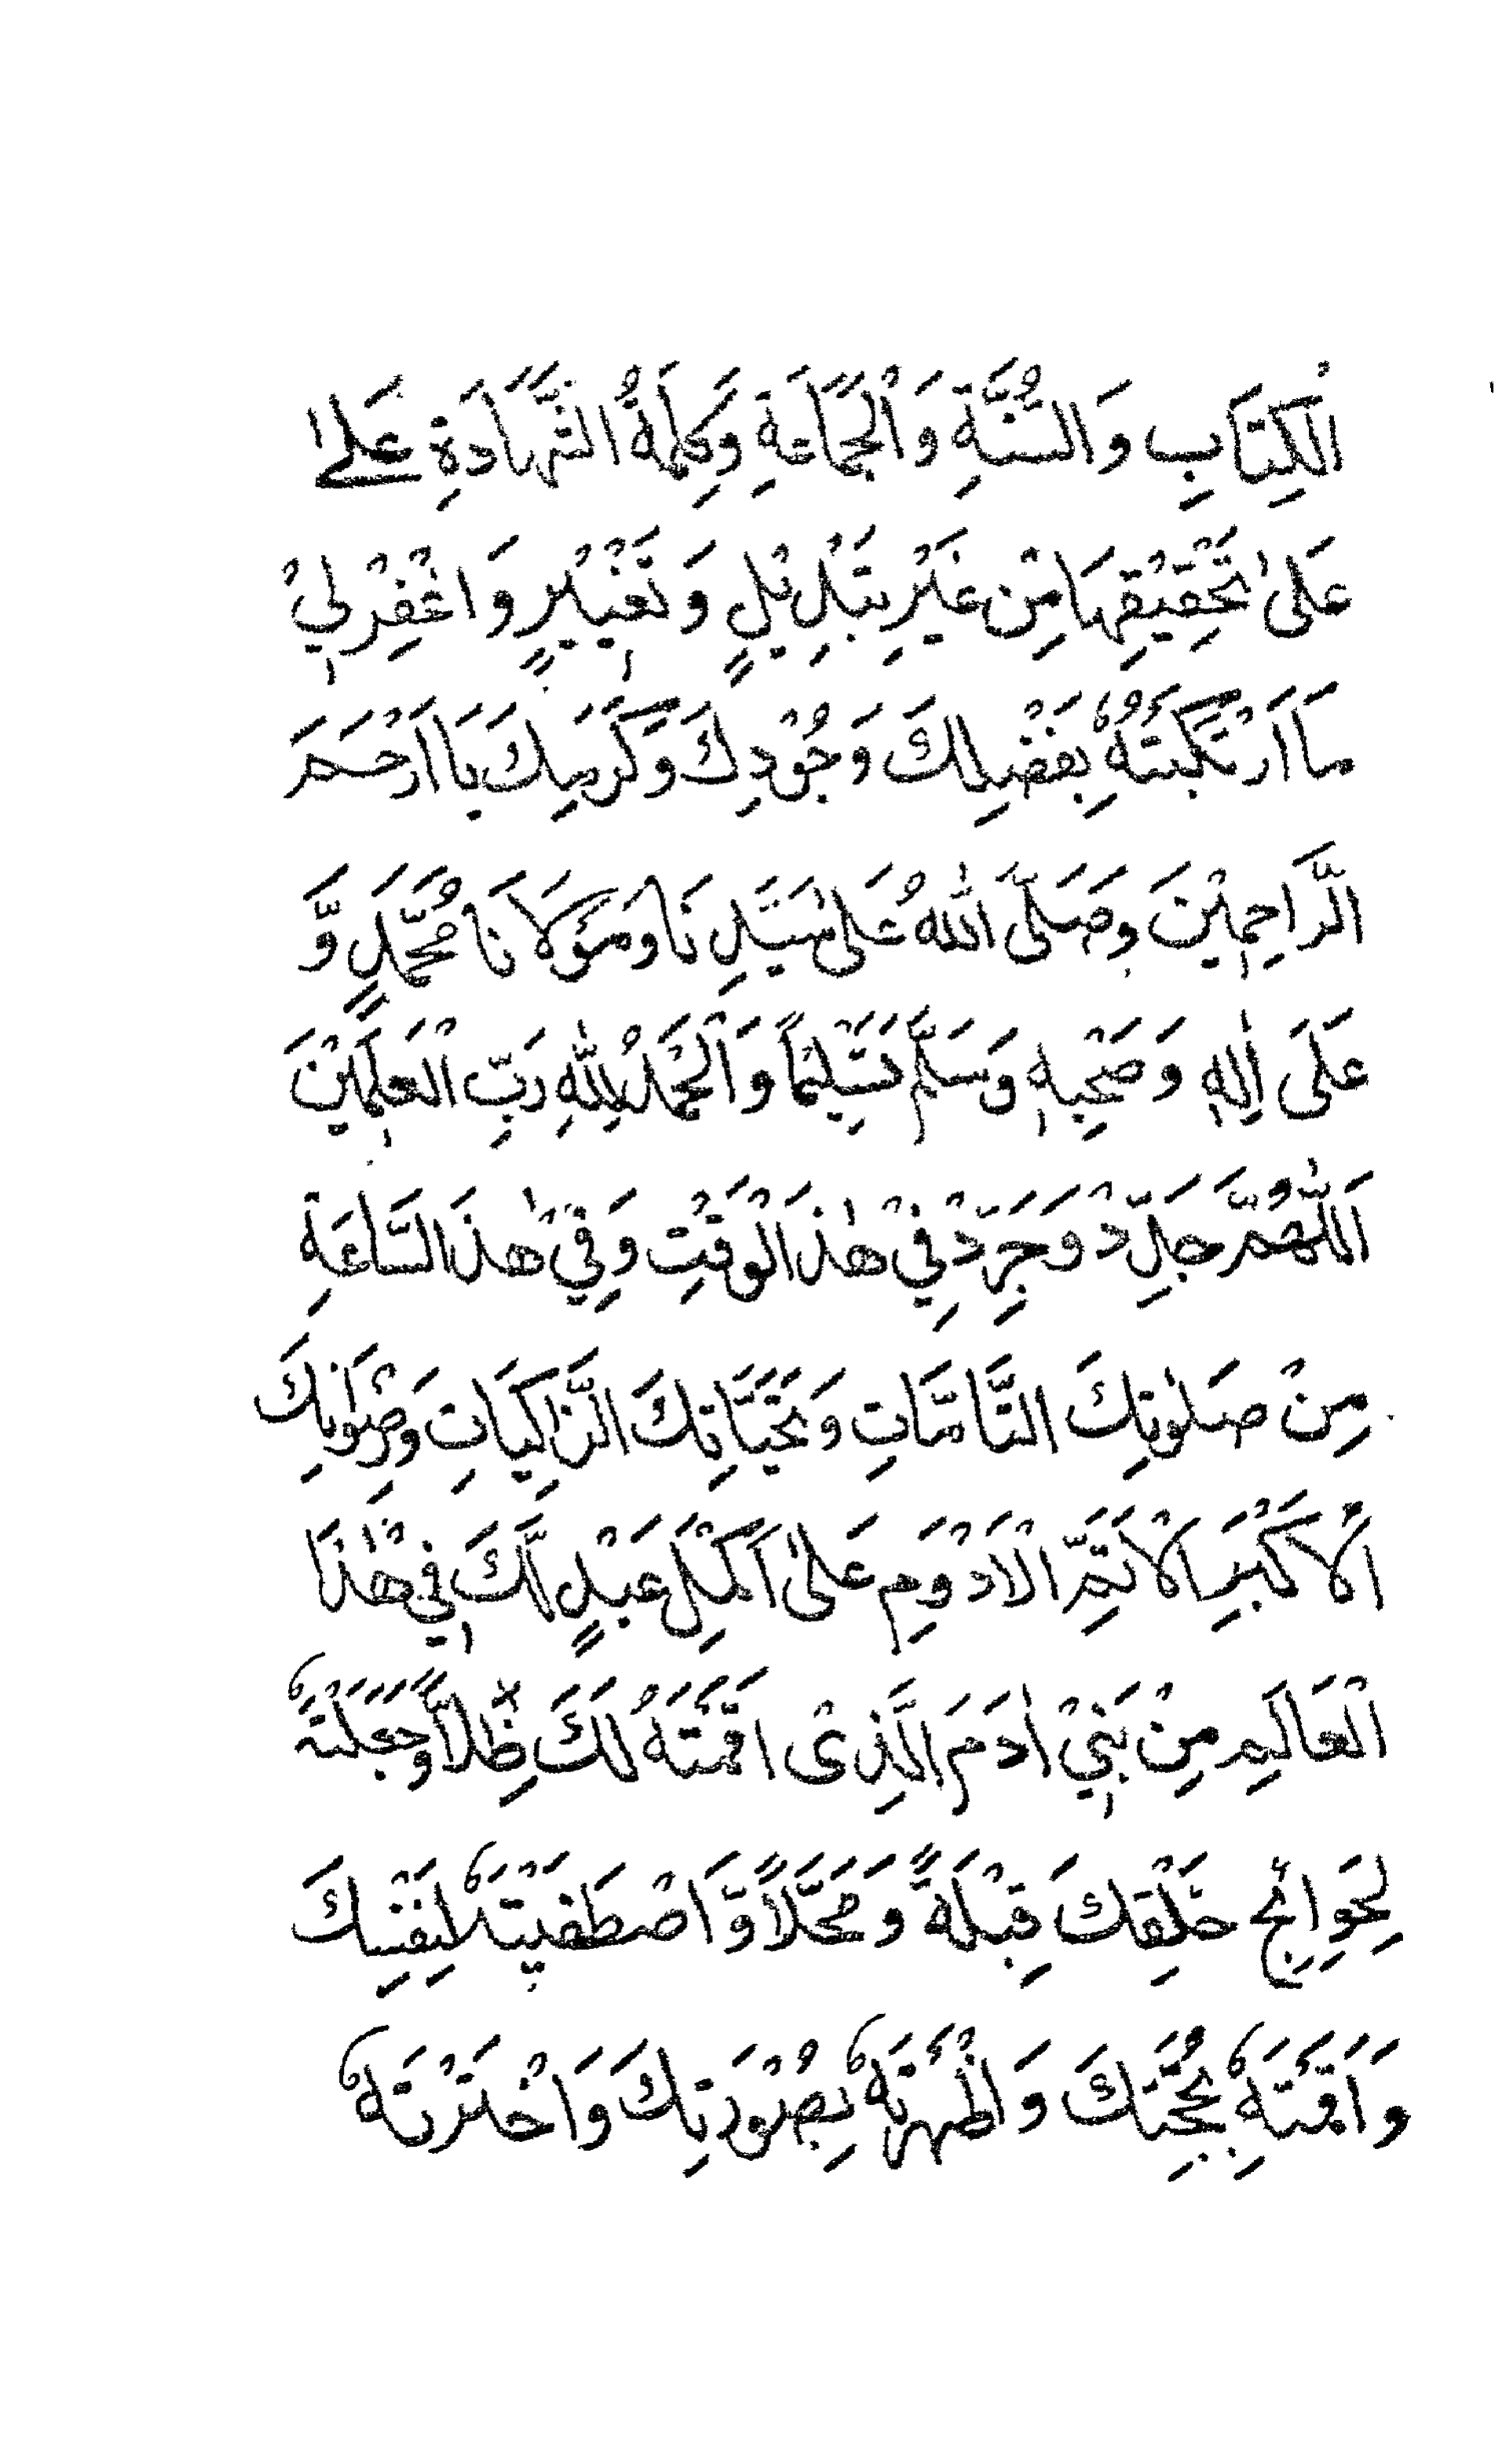 الْكِتَابِ وَالسُّنَّةِ وَالْجَمَاعَةِ وَكَلِمَةُ الشَّهَادَةِ عَلٰى
عَلٰى تَحْقِيْقِهَا مِنْ غَيْرِ تَبْدِيْلٍ وَتَغْيِيْرٍ وَاغْفِرْلِيْ
مَا ارْتَكَبْتُهٗ بِفَضْلِكَ وَجُوْدِكَ وَكَرَمِكَ يَا اَرْحَمَ
الرَّاحِمِيْنَ وَصَلَّى اللّٰهُ عَلٰى سَيِّدِنَا وَمَوْلَانَا مُحَمَّدٍ وَّ
عَلَى اٰلِهٖ وَصَحْبِهٖ وَسَلَّمَ تَسْلِيْمًا وَالْحَمْدُ لِلّٰهِ رَبِّ الْعٰلَمِيْنَ
اَللّٰهُمَّ جَدِّدْ وَجَرِّدْ فِيْ هٰذَا الْوَقْتِ وَفِيْ هٰذَا السَّاعَةِ
مِنْ صَلٰوتِكَ التَّامَّاتِ وَتَحِيَّاتِكَ الزَّاكِيَاتِ وَرِضْوَانِكَ
الْاَكْبَرِ الْاَتَمِّ الْاَدْوَمِ عَلٰى اَكْمَلِ عَبْدٍ لَّكَ فِيْ هٰذَا
الْعَالَمِ مِنْ بَنِيْ اٰدَمَ الَّذِىْ اَقَمْتَهٗ لَكَ ظِلًّا وَّجَعَلْتَهٗ
لِحَوَائِجِ خَلْقِكَ قِبْلَةً وَمَحَلًّا وَّاصْطَفَيْتَهٗ لِنَفْسِكَ
وَاَقَمْتَهٗ بِحُجَّتِكَ وَاَظْهَرْتَهٗ بِصُوْرَتِكَ وَاخْتَرْتَهٗ